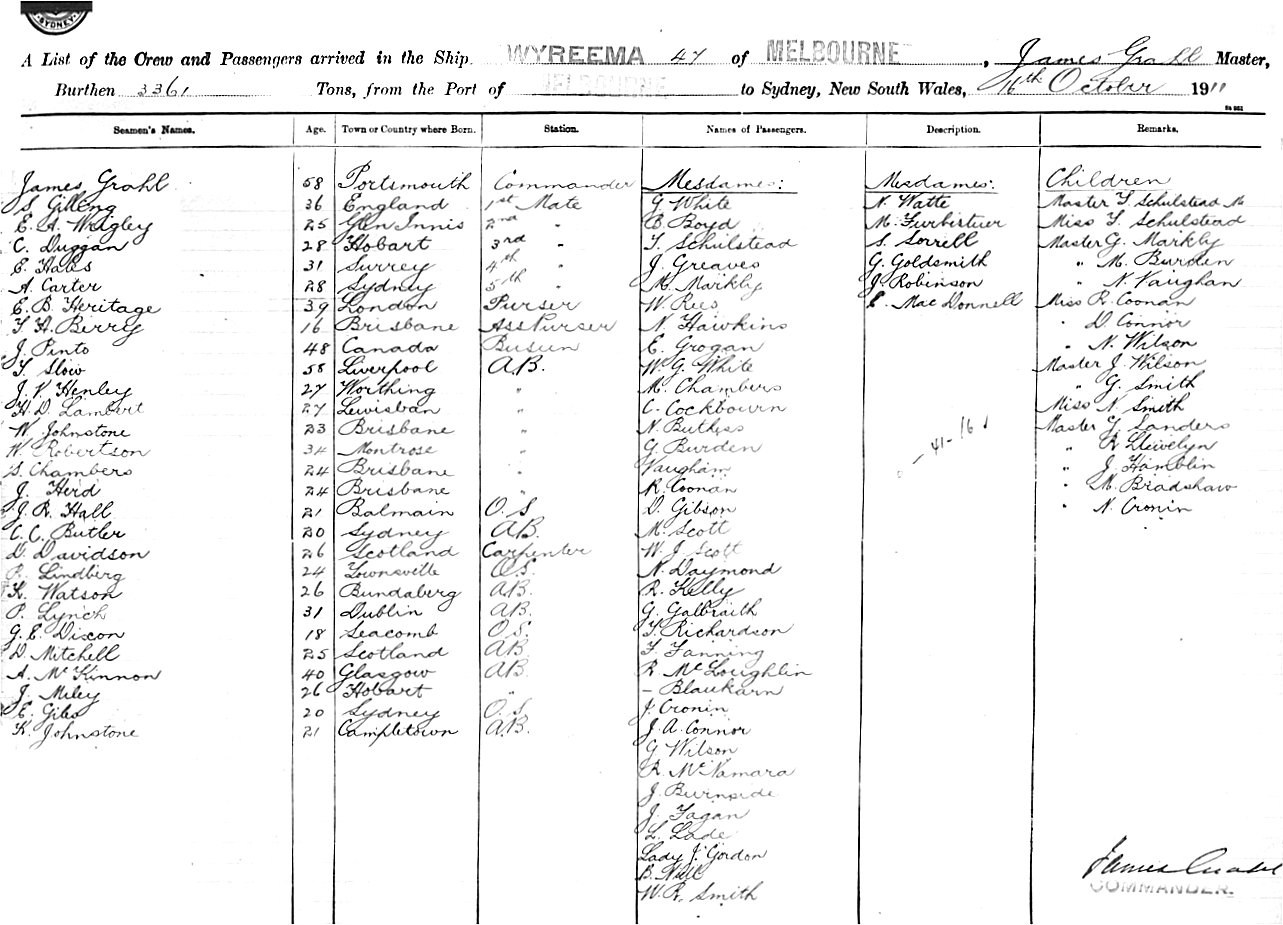 SYDNEY
A List of the Crew and Passengers arrived in the Ship WYREEMA 47 of MELBOURNE, James Grahl Master,
Burthen 3361 Tons, from the Port of MELBOURNE to Sydney, New South Wales, 16th October 1911
Seamen's Names. Age. Town or Country where Born. Station. Names of Passengers. Description. Remarks.
James Grahl 58 Portsmouth Commander Mesdames: Mesdames: Children
S. Gilling 36 England 1st Mate G. White N. Watte Master T. Schulstead
E. A. Wrigley 25 Glen Innis 2nd " E. Boyd M. Miss T. Schulstead
C. Duggan 28 Hobart 3rd " T. Schulstead S. Sorrell Master G. Markly
E. Hales 31 Surrey 4th " J. Greaves G. Goldsmith " M. Burden
A. Carter 28 Sydney 5th " M. Markly J. Robinson " N. Vaughan
E. B. Heritage 39 London Purser W. Rees E. Mac Donnell Miss R. Coonan
T. A. Berry 16 Brisbane Ass Purser N. Hawkins " D. Connor
J. Pinto 48 Canada E. Grogan " N. Wilson
T. Slow 58 Liverpool A.B. W. G. White Master J. Wilson
J. V. Henley 27 Worthing " M. Chambers " G. Smith
H. D. Lambert 27 Lewisban " C. Cockbourn Miss N. Smith
W. Johnstone 23 Brisbane " N. Master G. Sanders
W. Robertson 34 Montrose " G. Burden " R. Llewelyn
S. Chambers 24 Brisbane " Vaugham " J. Hamblin
J. Herd 24 Brisbane " R. Coonan " M. Bradshaw
J. R. Hall 21 Balmain O.S. D. Gibson " N. Cronin
C. C. Butler 20 Sydney A.B. M. Scott
D. Davidson 26 Scotland Carpenter W. J. Scott
P. Lindberg 24 Townsville O.S. N. Daymond
K. Watson 26 Bundaberg A.B. R. Kelly
P. Lynch 31 Dublin A.B. G. Galbraith
G. E. Dixon 18 Seacomb O.S. T. Richardson
D. Mitchell 25 Scotland A.B. F. Fanning
A. McKinnon 40 Glasgow A.B. R. McLoughlin
J. Miley 26 Hobart " – Blaukarn
E. Giles 20 Sydney O.S. J. Cronin
K. Johnstone 21 Campletown A.B. J. A. Connor
G. Wilson
R. McNamara
J. Burnside
J. Fagan
L. Lade
Lady J. Gordon
B. Nell
W. R. Smith
James Grahl
COMMANDER.